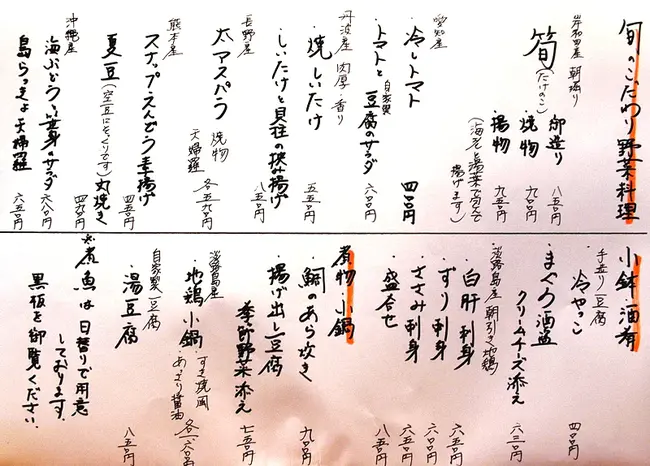 旬のこだわり野菜料理
岸和田産 朝掘り
筍(たけのこ)
御造り 八五〇円
・焼物 九五〇円
・揚物 九五〇円
(海老と湯葉で包んで
揚げます)
愛知産
・冷しトマト 四〇〇円
・トマトと自家製豆腐のサラダ 六〇〇円
丹波産 肉厚・香り
・焼しいたけ 五五〇円
・しいたけと貝柱の挟み揚げ 八五〇円
長野産
太アスパラ 焼物 天婦羅 各五九〇円
熊本産
スナップえんどう素揚げ 四五〇円
夏豆(空豆にそっくりです)丸焼き 四九〇円
沖縄産
海ぶどうと笹身のサラダ 六八〇円
島らっきょ天婦羅 六五〇円
小鉢 酒肴
手造り豆腐
冷やっこ 四〇〇円
・まぐろ酒盗
クリームチーズ添え 六三〇円
淡路島産 朝引き地鶏
・白肝刺身 六五〇円
・ずり刺身 六〇〇円
・ささみ刺身 六五〇円
・盛合せ 八五〇円
煮物 小鍋
・鯛のあら炊き 九〇〇円
・揚げ出し豆腐
季節野菜添え 七五〇円
淡路島産
・地鶏小鍋 ・すき焼風 ・あっさり醤油 各一六〇〇円
自家製豆腐
・湯豆腐 八五〇円
※煮魚は日替りで用意
しております。
黒板を御覧ください。